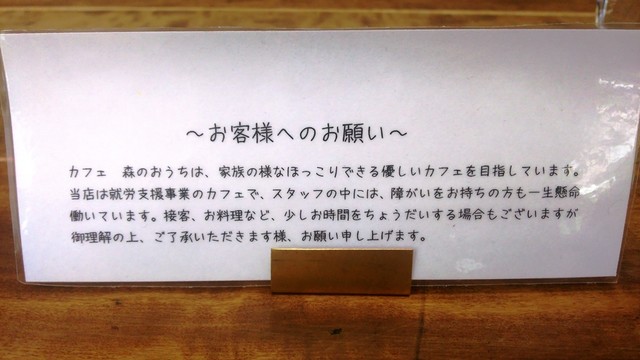 ～お客様へのお願い～
カフェ　森のおうちは、家族の様なほっこりできる優しいカフェを目指しています。
当店は就労支援事業のカフェで、スタッフの中には、障がいをお持ちの方も一生懸命
働いています。接客、お料理など、少しお時間をちょうだいする場合もございますが
御理解の上、ご了承いただきます様、お願い申し上げます。